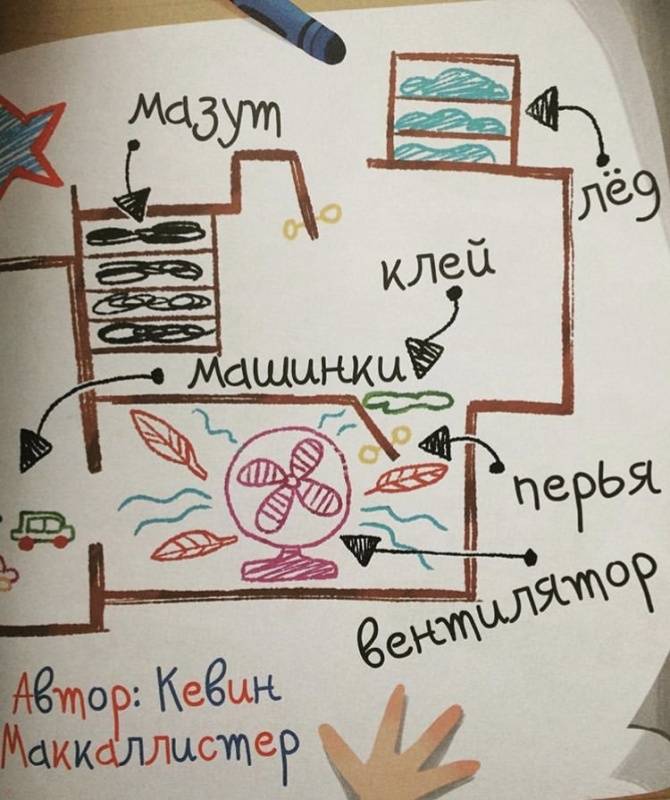 мазут
лёд
клей
машинки
перья
вентилятор
Автор: Кевин
Маккаллистер